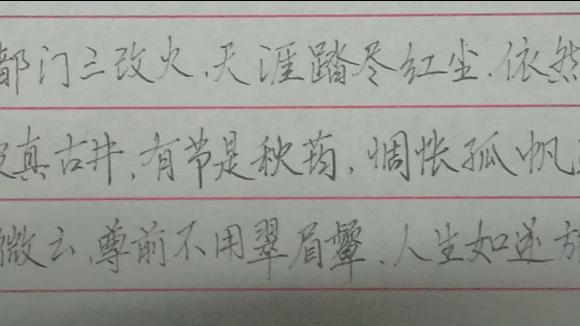 都门三改火,天涯踏尽红尘.依然
真古井,有节是秋筠,惆怅孤帆
微云,尊前不用翠眉颦,人生如逆